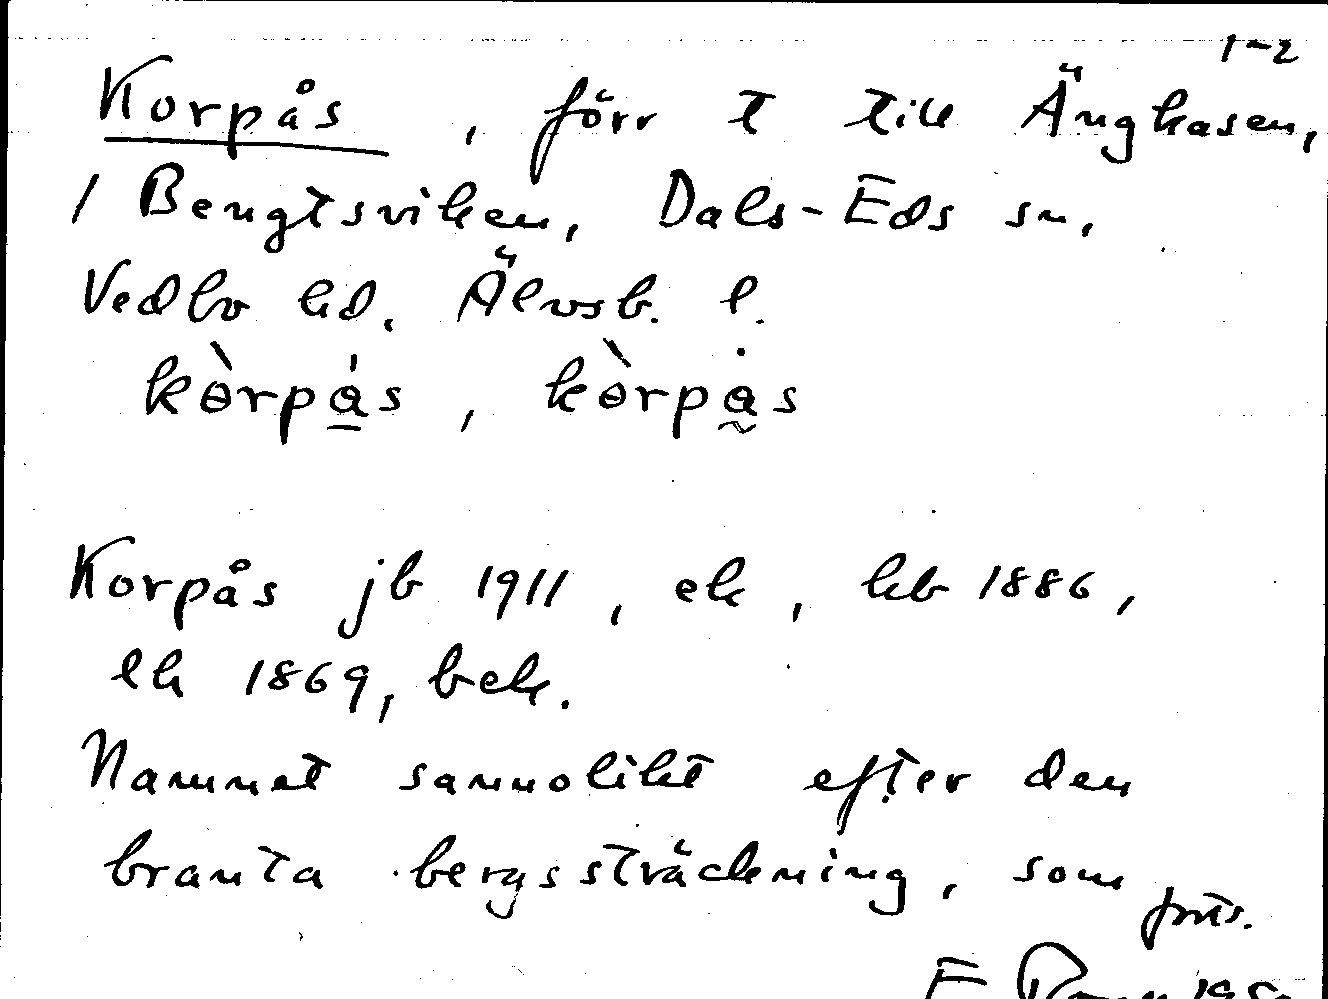 1-2
Korpås, förr t till Ängkasen,
/ Bengtsviken, Dals-Eds sn,
Vedbo hd. Älvsb. l.
kòrpás, kòrpȧs
Korpås jb 1911, ek, kb 1886,
lk 1869, bek.
Namnet sannolikt efter den
branta bergssträckning, som
forts.
E